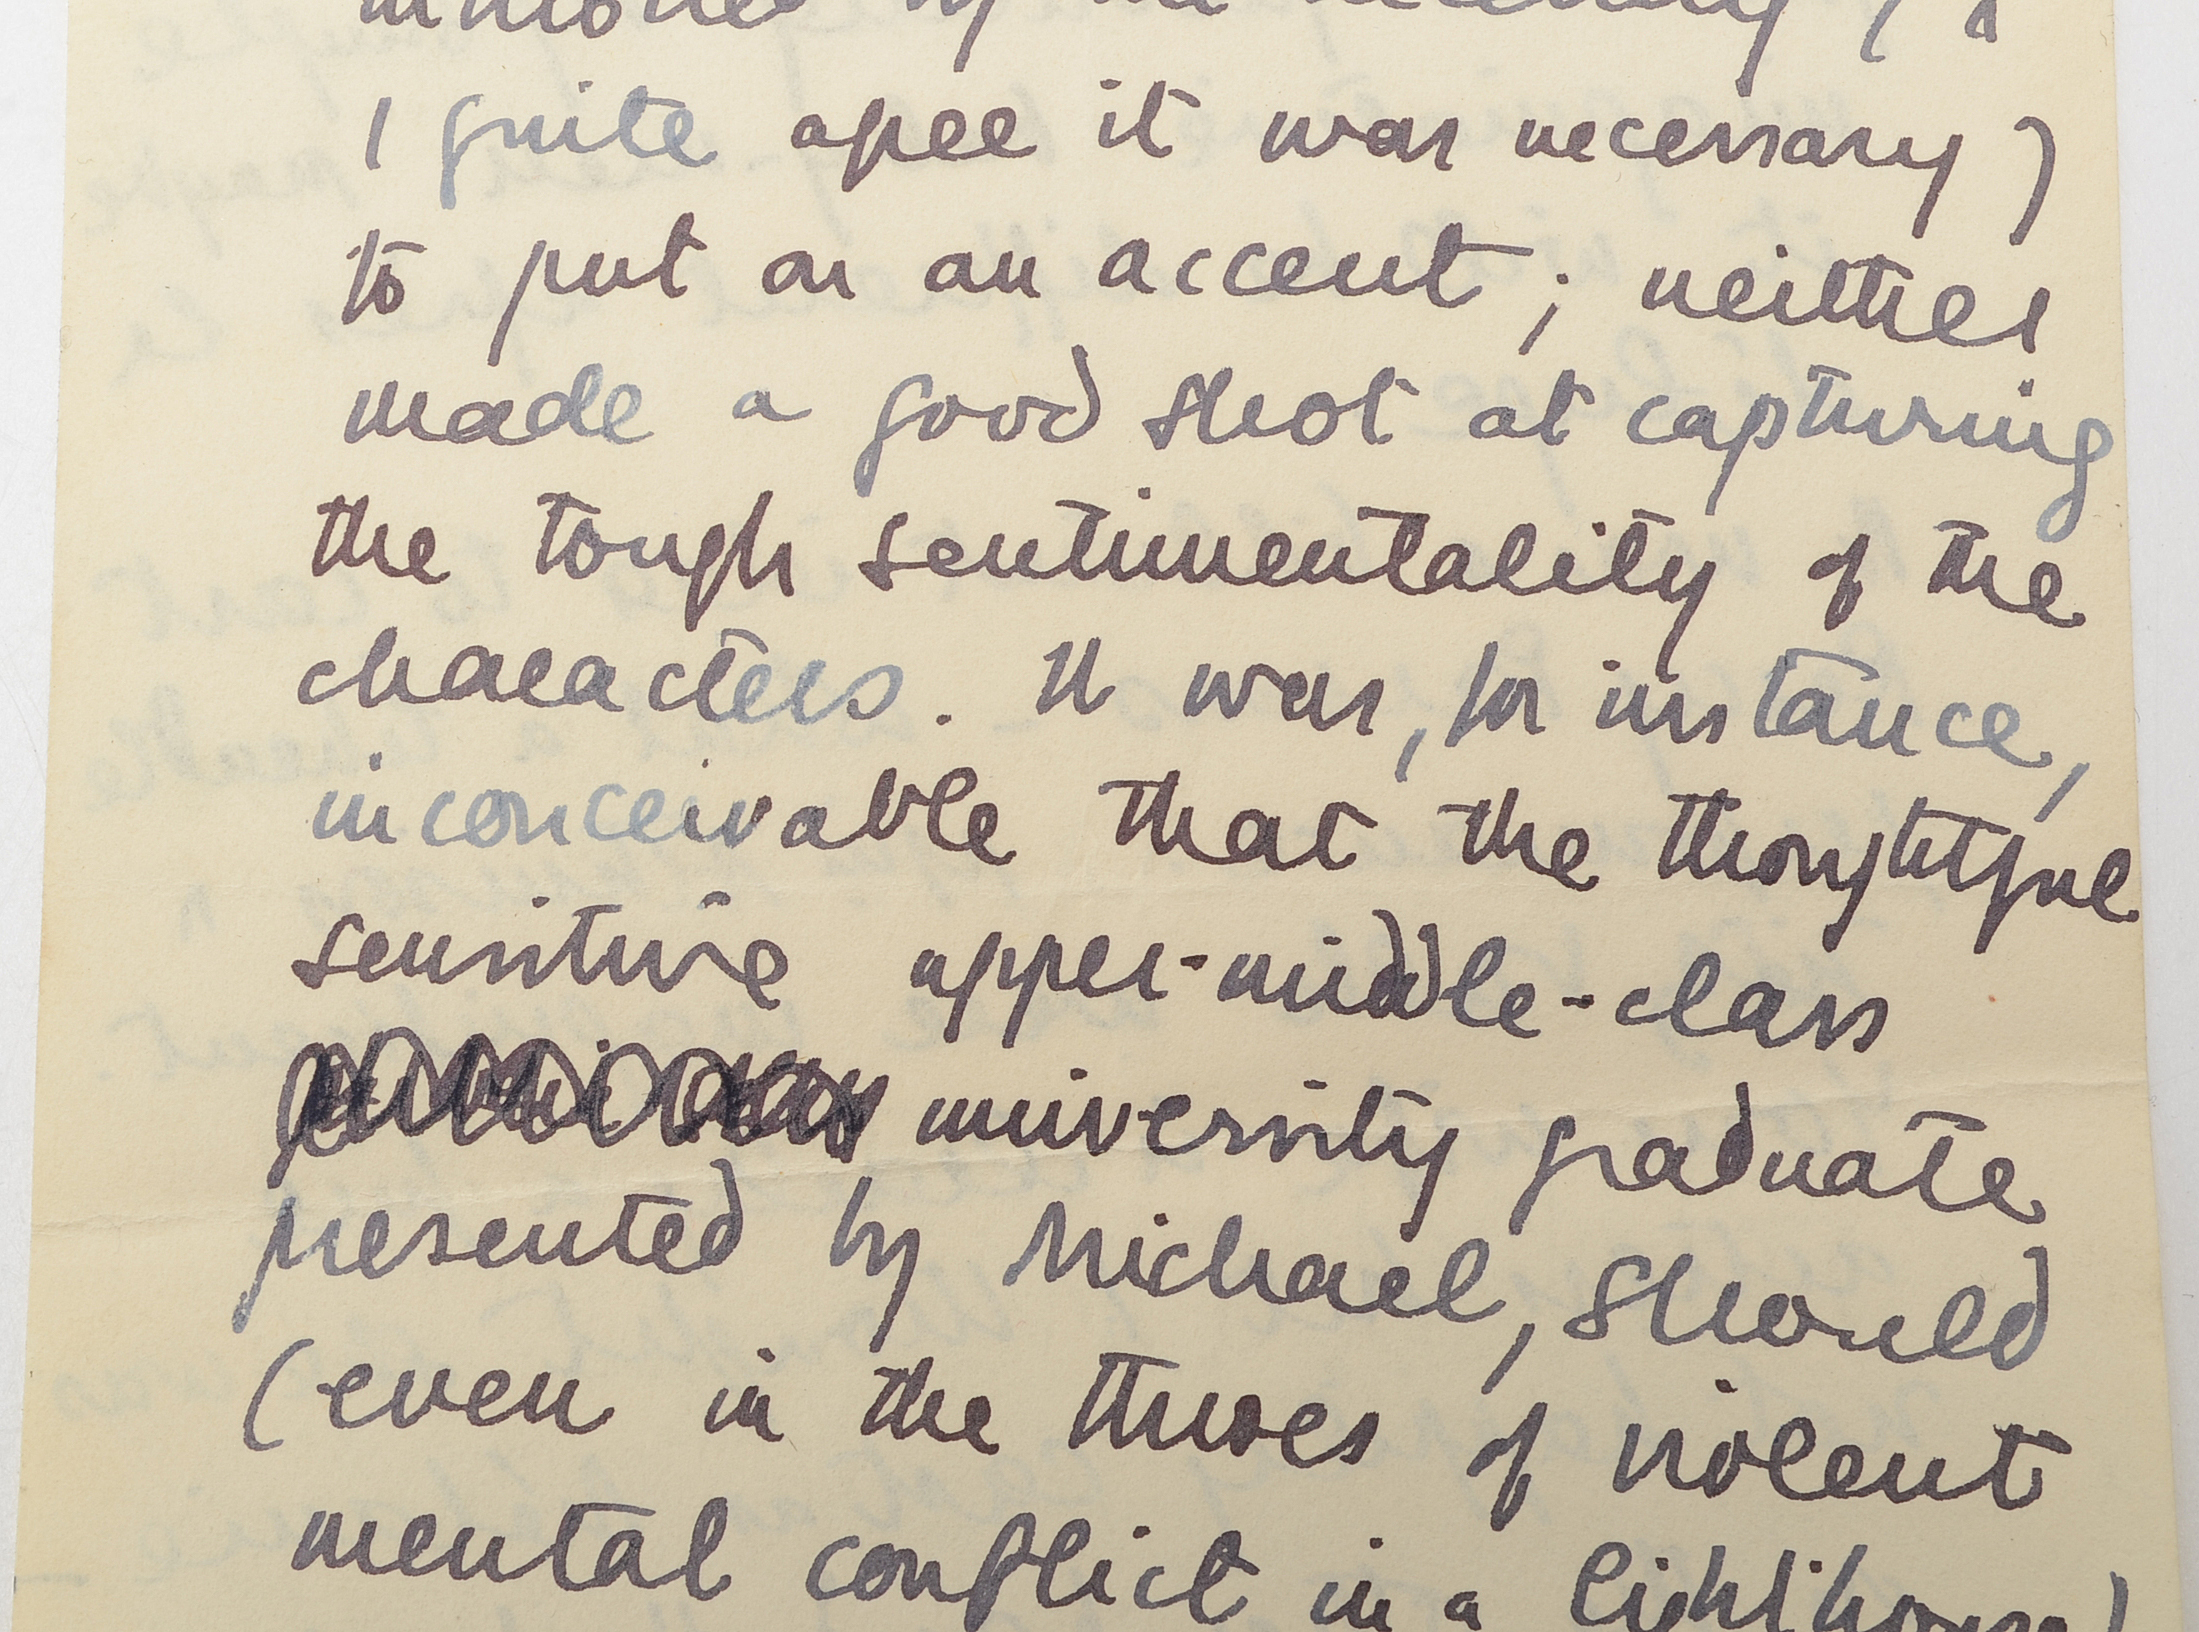 by the necessity (&
I quite agree it was necessary)
to put on an accent; neither
made a good shot at capturing
the tough sentimentality of the
characters. It was, for instance,
inconceivable that the thoughtful
sensitive upper-middle-class
university graduate
presented by Michael, should
(even in the throes of violent
mental conflict in a lighthouse)